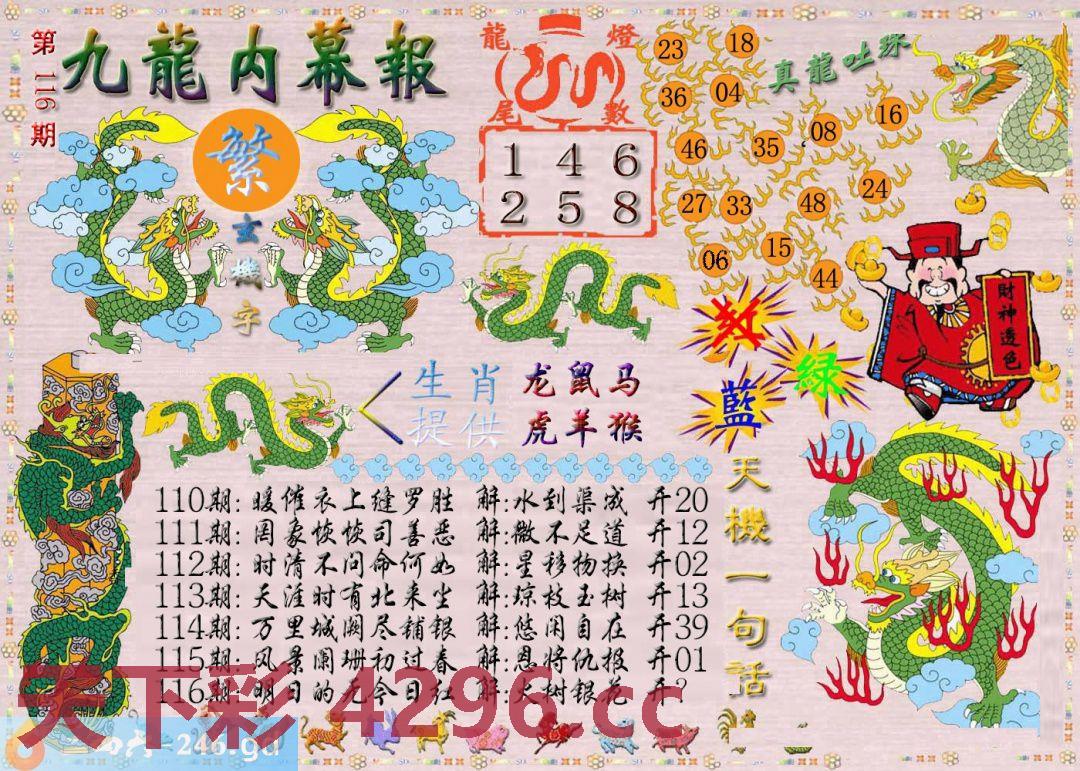 第116期
九龍内幕報
繁
玄機字
龍燈
尾數
1 4 6
2 5 8
真龍吐珠
23 18
36 04
46 35 08 16
27 33 48 24
06 15 44
財神透色
红
綠
藍
生肖 龙鼠马
提供 虎羊猴
天機一句話
110期: 暖催衣上缝罗胜 解:水到渠成 开20
111期: 罔象侦侦司善恶 解:微不足道 开12
112期: 时清不问命何如 解:星移物换 开02
113期: 天涯时有北来尘 解:琼枝玉树 开13
114期: 万里城阙尽铺银 解:悠闲自在 开39
115期: 风景阑珊初过春 解:恩将仇报 开01
116期: 明日的无今日红 解:火树银花 开?
天下彩 4296.cc
246.gd